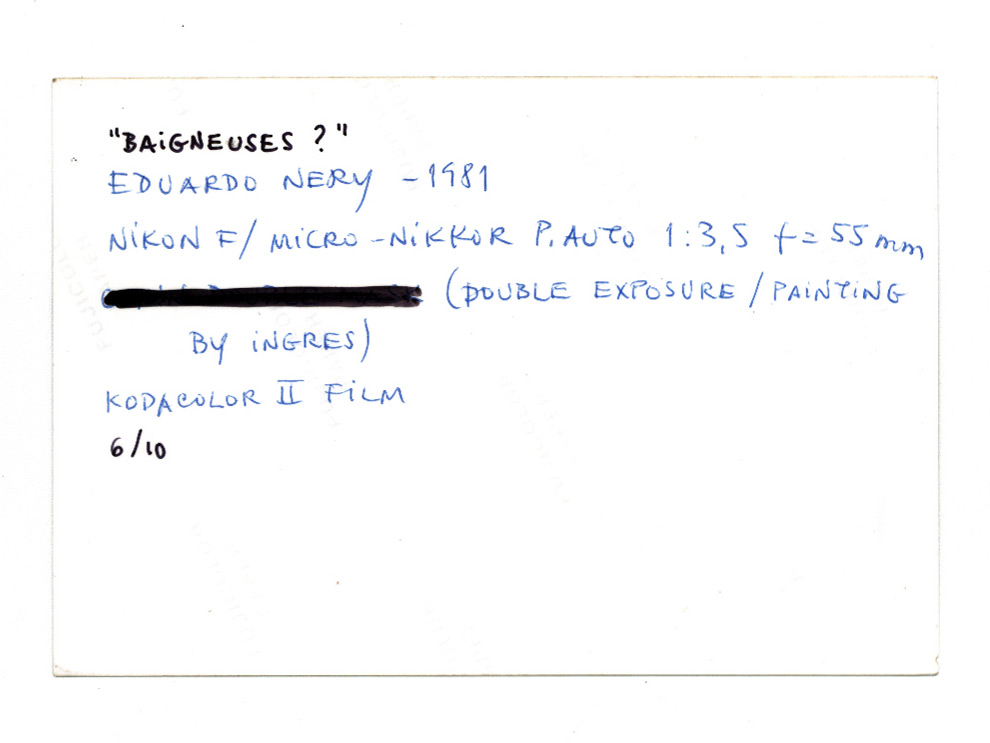 "BAiGNEUSES ?"
EDUARDO NERY - 1981
NiKON F/ MiCRO-NiKKOR P. AUTO 1:3,5 f= 55 mm
(DOUBLE EXPOSURE / PAiNTiNG
BY iNGRES)
KODACOLOR II FiLM
6/10